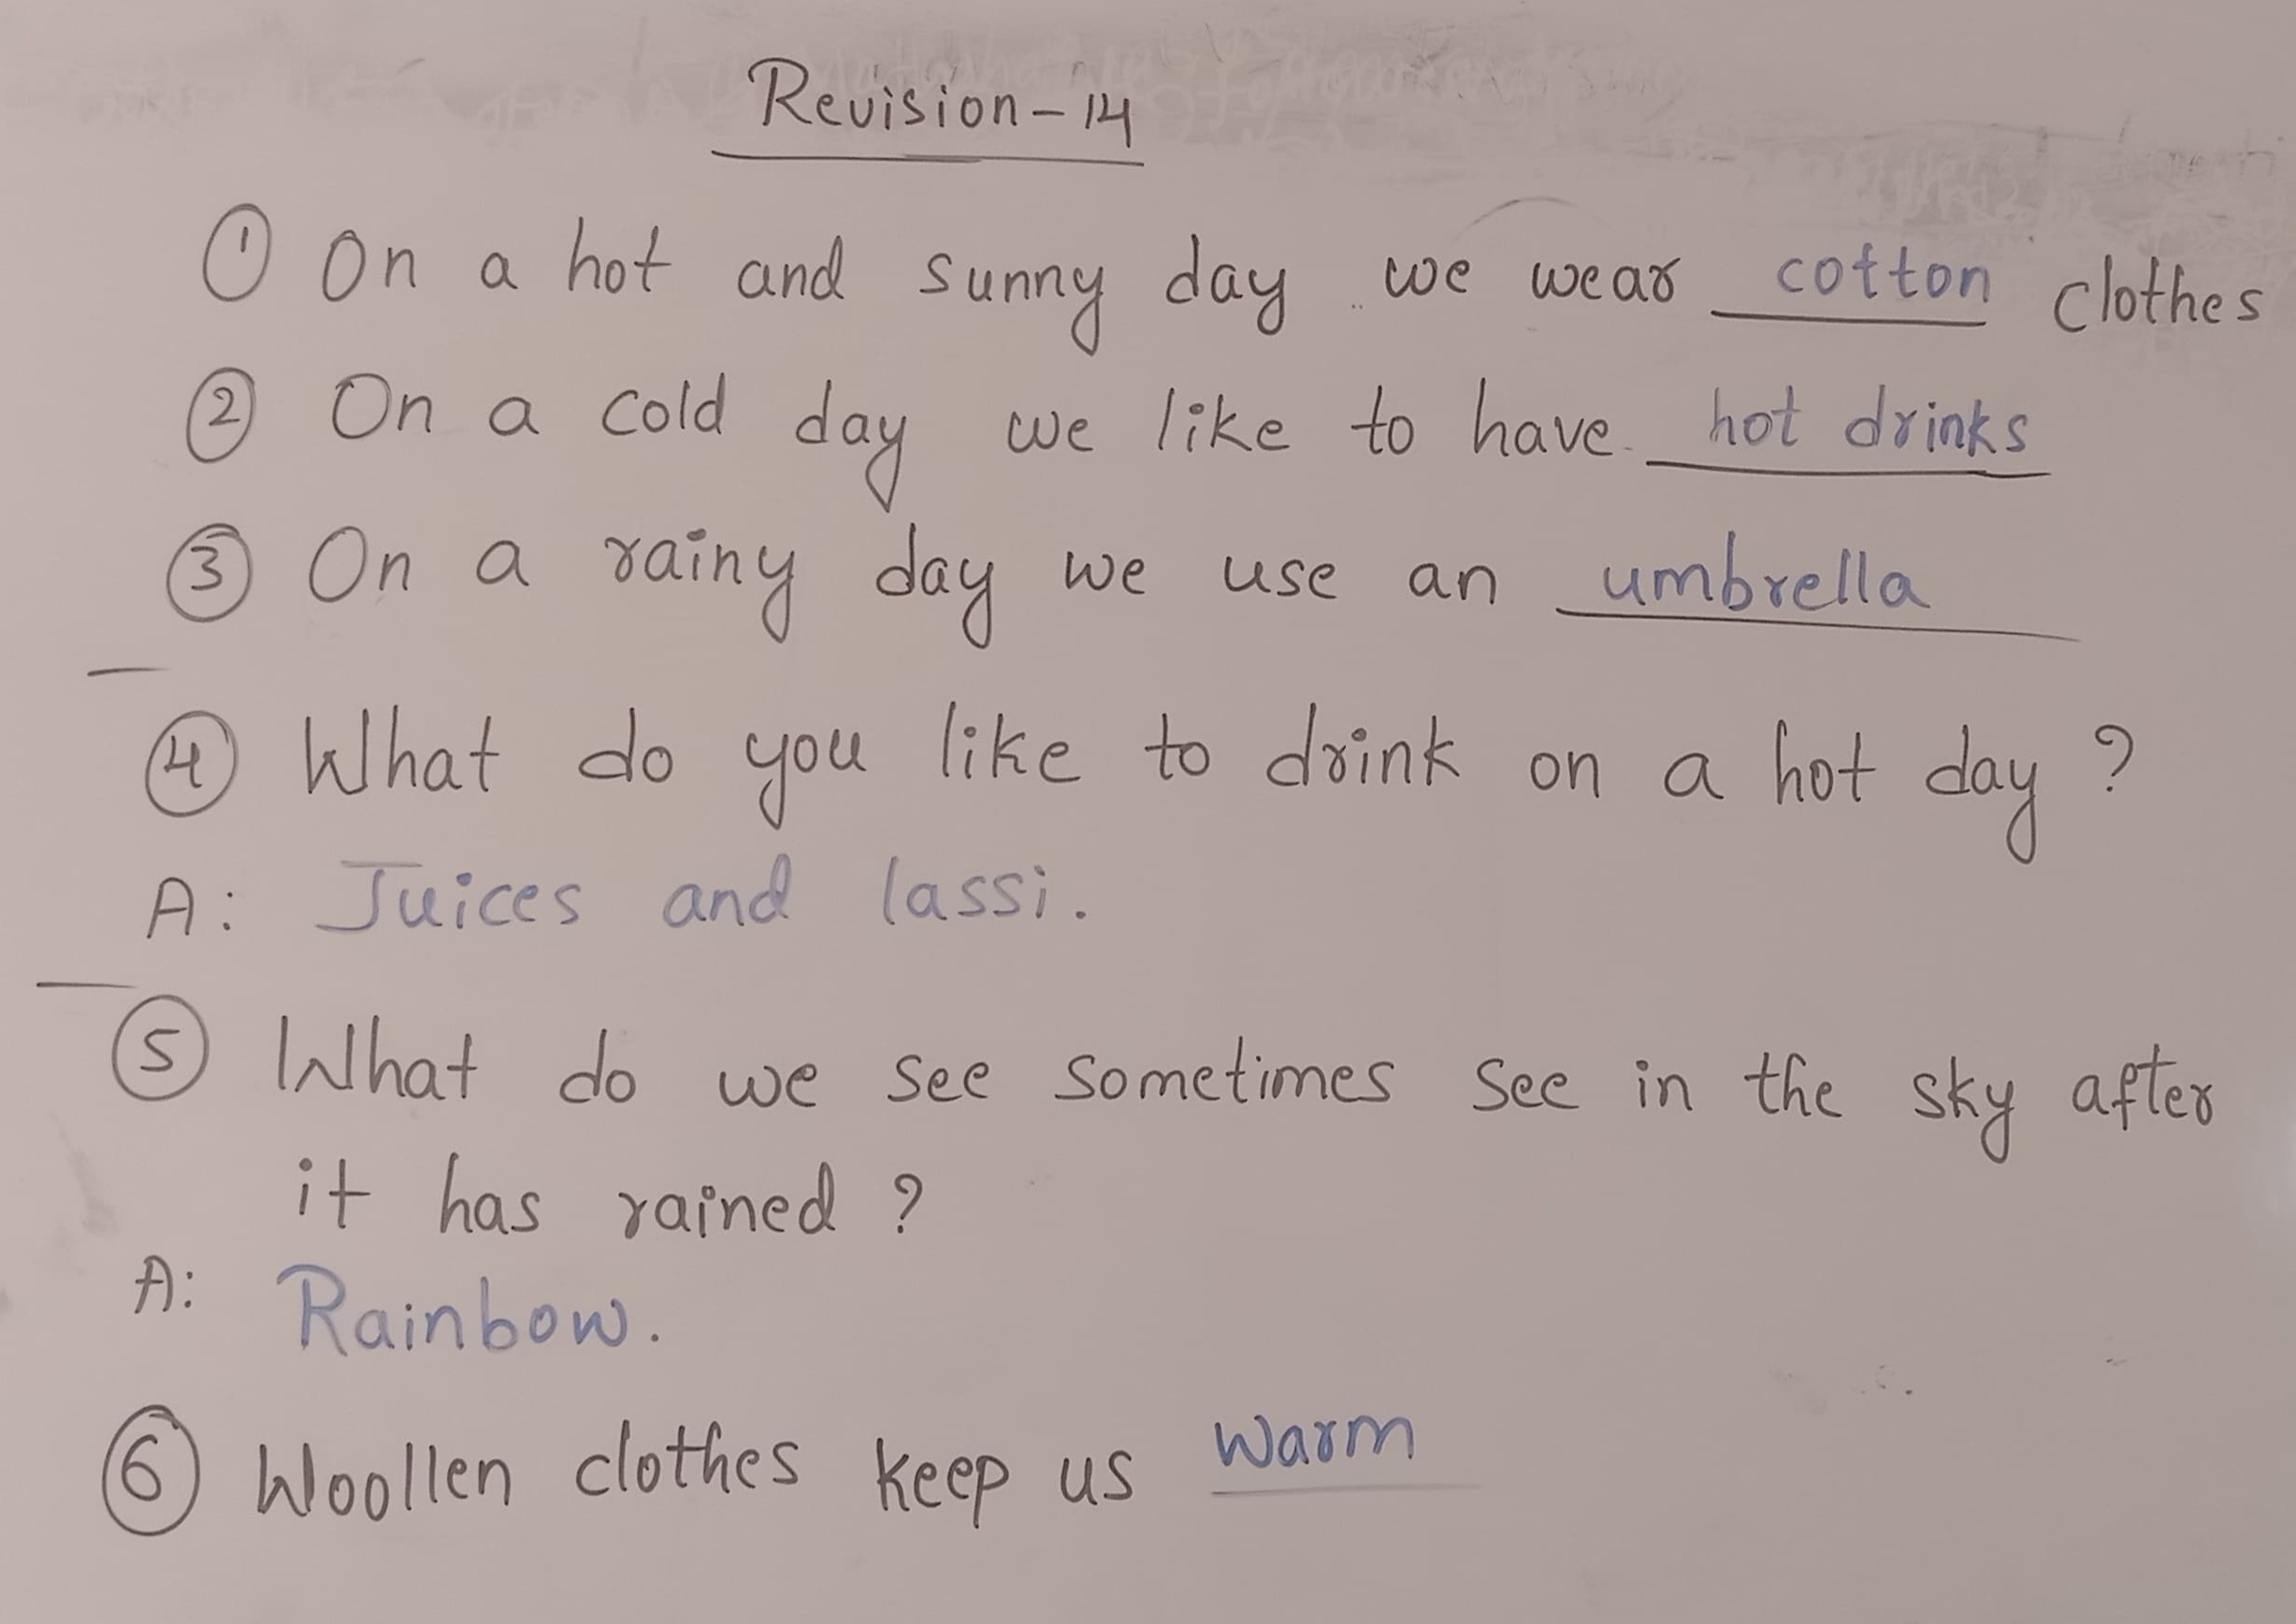 Revision-14
① On a hot and sunny day we wear cotton clothes
② On a cold day we like to have hot drinks
③ On a rainy day we use an umbrella
④ What do you like to drink on a hot day ?
A: Juices and lassi.
⑤ What do we see sometimes see in the sky after
it has rained ?
A: Rainbow.
⑥ Woollen clothes keep us warm